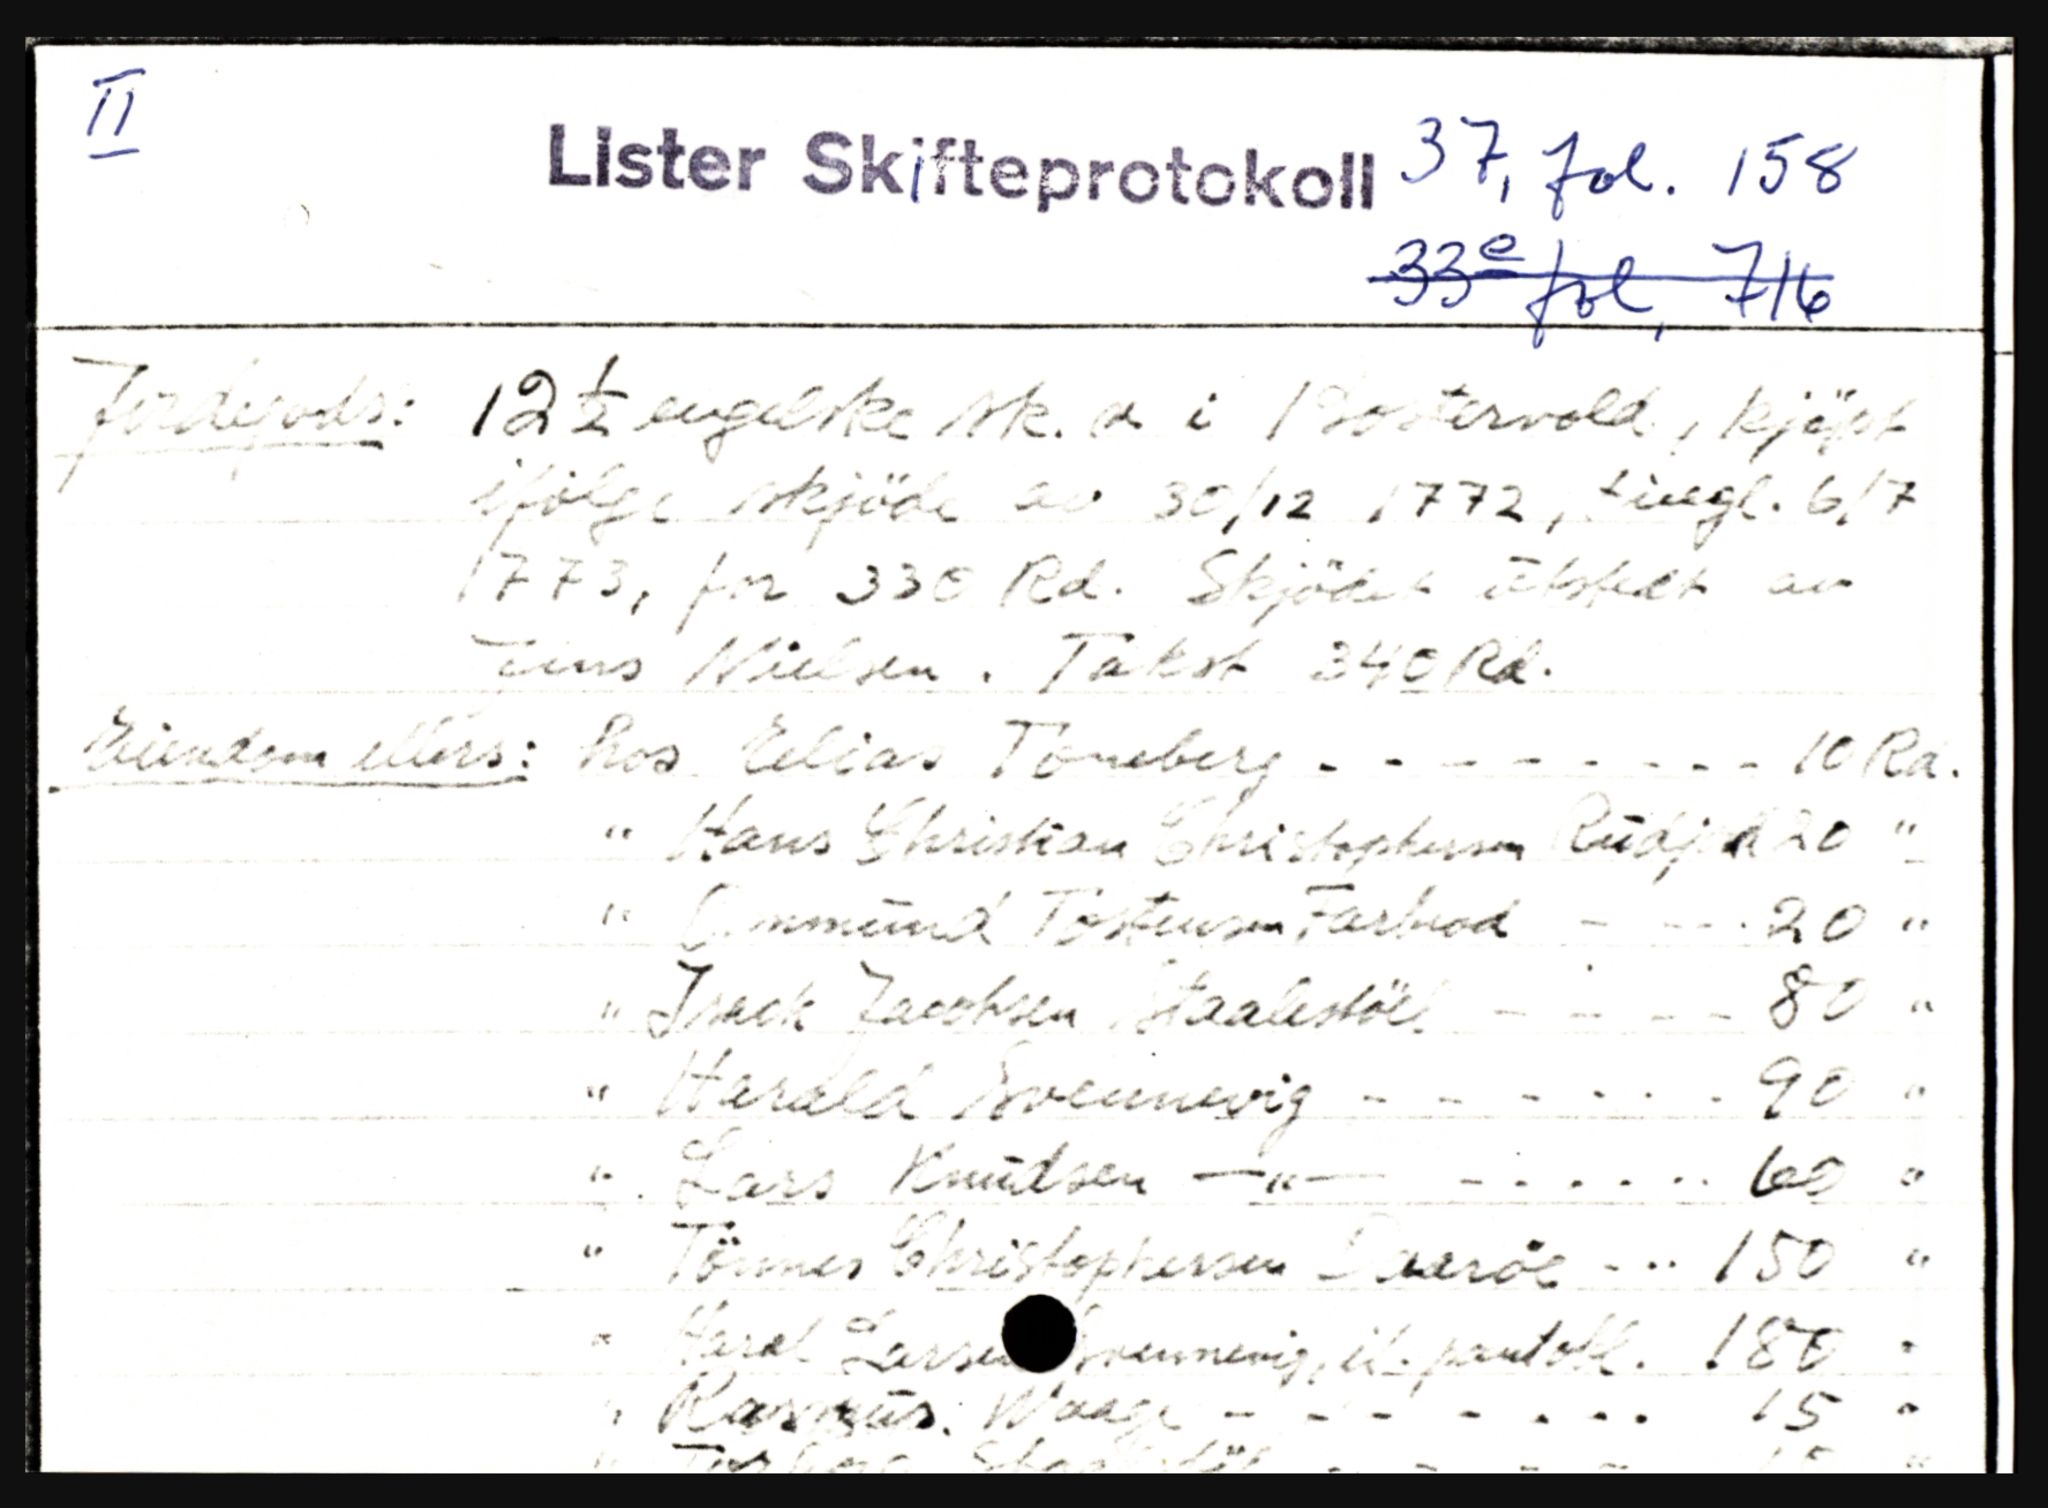 II
Lister Skifteprotokoll 37, fol. 158
33e fol, 716
Jordegods: 12 ½ engelske sk. a i Postervold, kjöpt
ifölge skjöde av 30/12 1772, tingl. 6/7
1773, for 330 Rd. Skjödet utstedt av
Jens Nielsen. Takst 340 Rd.
Eiendom ellers: hos Elias Toneberg - - - - - - - - - 10 Rd.
" Hans Christian Christophersen 20 "
" Ommund Tostensen Farbrod - - - - 20 "
" Isack Jacobsen Staalestöl - - - - - 80 "
" Harald Svennevig - - - - - - - 90 "
" Lars Knudsen —"— - - - - - - 60 "
" Tönnes Christophersen - - - 150 "
" Haral Larsen Svennevig, il. pantobl. 180 "
" Rasmus Waage - - - - - - - 15 "